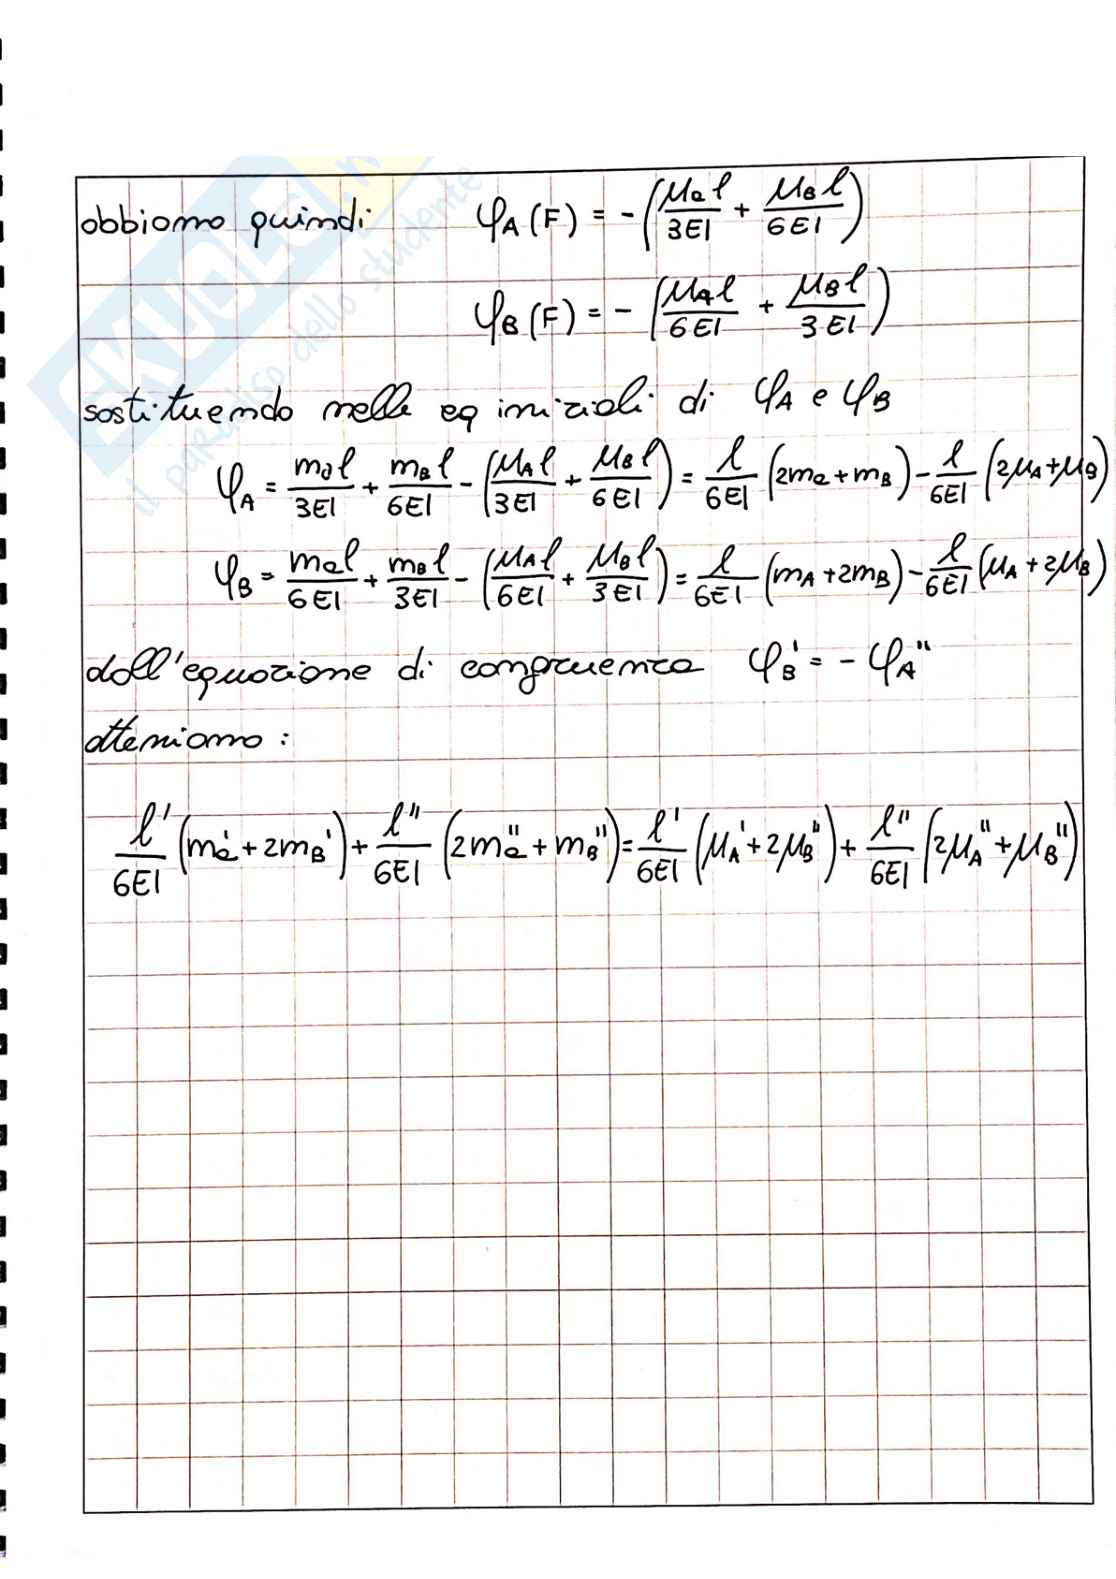 SKUOLA.n
il paradiso dello studente
abbiamo quindi φA(F) = -(μa l/3EI + μB l/6EI)
φB(F) = -(μA l/6EI + μB l/3EI)
sostituendo nelle eq iniziali di φA e φB
φA = ma l/3EI + mB l/6EI - (μA l/3EI + μB l/6EI) = l/6EI (2ma + mB) - l/6EI (2μA + μB)
φB = ma l/6EI + mB l/3EI - (μA l/6EI + μB l/3EI) = l/6EI (mA + 2mB) - l/6EI (μA + 2μB)
dall'equazione di congruenza φB' = -φA''
otteniamo:
l'/6EI (ma' + 2mB') + l''/6EI (2ma'' + mB'') = l'/6EI (μA' + 2μB'') + l''/6EI (2μA'' + μB'')